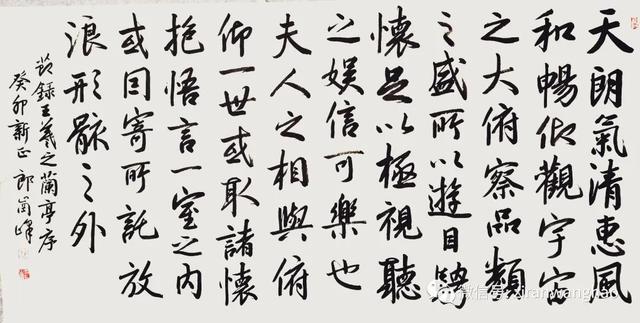 天朗氣清惠風
和暢仰觀宇宙
之大俯察品類
之盛所以遊目騁
懷足以極視聽
之娛信可樂也
夫人之相與俯
仰一世或取諸懷
抱悟言一室之內
或因寄所託放
浪形骸之外
節錄王羲之蘭亭序
癸卯新正郎
微信号: